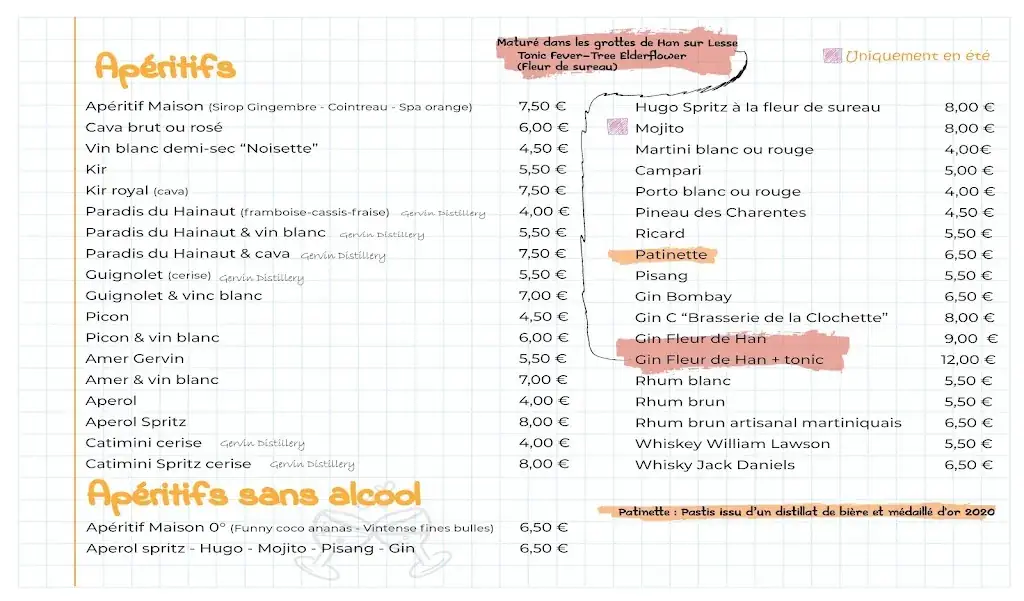 Apéritifs
Apéritif Maison (Sirop Gingembre - Cointreau - Spa orange) 7,50 €
Cava brut ou rosé 6,00 €
Vin blanc demi-sec “Noisette” 4,50 €
Kir 5,50 €
Kir royal (cava) 7,50 €
Paradis du Hainaut (framboise-cassis-fraise) Gervin Distillery 4,00 €
Paradis du Hainaut & vin blanc Gervin Distillery 5,50 €
Paradis du Hainaut & cava Gervin Distillery 7,50 €
Guignolet (cerise) Gervin Distillery 5,50 €
Guignolet & vinc blanc 7,00 €
Picon 4,50 €
Picon & vin blanc 6,00 €
Amer Gervin 5,50 €
Amer & vin blanc 7,00 €
Aperol 4,00 €
Aperol Spritz 8,00 €
Catimini cerise Gervin Distillery 4,00 €
Catimini Spritz cerise Gervin Distillery 8,00 €
Apéritifs sans alcool
Apéritif Maison 0° (Funny coco ananas - Vintense fines bulles) 6,50 €
Aperol spritz - Hugo - Mojito - Pisang - Gin 6,50 €
Maturé dans les grottes de Han sur Lesse
Tonic Fever-Tree Elderflower
(Fleur de sureau)
Uniquement en été
Hugo Spritz à la fleur de sureau 8,00 €
Mojito 8,00 €
Martini blanc ou rouge 4,00€
Campari 5,00 €
Porto blanc ou rouge 4,00 €
Pineau des Charentes 4,50 €
Ricard 5,50 €
Patinette 6,50 €
Pisang 5,50 €
Gin Bombay 6,50 €
Gin C “Brasserie de la Clochette” 8,00 €
Gin Fleur de Han 9,00 €
Gin Fleur de Han + tonic 12,00 €
Rhum blanc 5,50 €
Rhum brun 5,50 €
Rhum brun artisanal martiniquais 6,50 €
Whiskey William Lawson 5,50 €
Whisky Jack Daniels 6,50 €
Patinette : Pastis issu d'un distillat de bière et médaillé d'or 2020